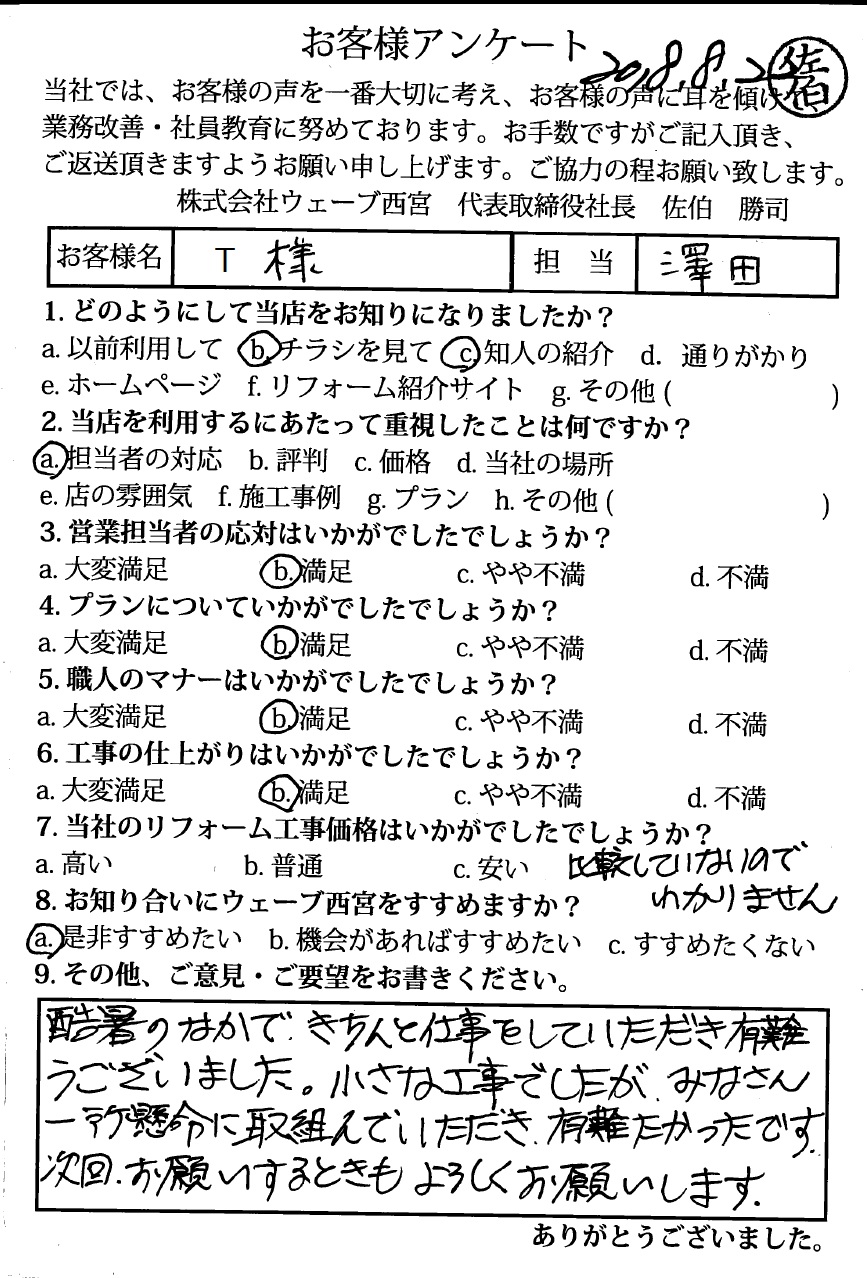 お客様アンケート
20,8,8,2 佐伯
当社では、お客様の声を一番大切に考え、お客様の声に耳を傾け
業務改善・社員教育に努めております。お手数ですがご記入頂き、
ご返送頂きますようお願い申し上げます。ご協力の程お願い致します。
株式会社ウェーブ西宮 代表取締役社長 佐伯 勝司
お客様名 T 様 担当 澤田
1. どのようにして当店をお知りになりましたか?
a. 以前利用して b. チラシを見て c. 知人の紹介 d. 通りがかり
e. ホームページ f. リフォーム紹介サイト g. その他 ( )
2. 当店を利用するにあたって重視したことは何ですか?
a. 担当者の対応 b. 評判 c. 価格 d. 当社の場所
e. 店の雰囲気 f. 施工事例 g. プラン h. その他 ( )
3. 営業担当者の応対はいかがでしたでしょうか?
a. 大変満足 b. 満足 c. やや不満 d. 不満
4. プランについていかがでしたでしょうか?
a. 大変満足 b. 満足 c. やや不満 d. 不満
5. 職人のマナーはいかがでしたでしょうか?
a. 大変満足 b. 満足 c. やや不満 d. 不満
6. 工事の仕上がりはいかがでしたでしょうか?
a. 大変満足 b. 満足 c. やや不満 d. 不満
7. 当社のリフォーム工事価格はいかがでしたでしょうか?
a. 高い b. 普通 c. 安い 比較していないので
わかりません
8. お知り合いにウェーブ西宮をすすめますか?
a. 是非すすめたい b. 機会があればすすめたい c. すすめたくない
9. その他、ご意見・ご要望をお書きください。
酷暑のなかで、きちんと仕事をしていただき有難
うございました。小さな工事でしたが、みなさん
一所懸命に取組んでいただき、有難たかったです。
次回、お願いするときもよろしくお願いします。
ありがとうございました。